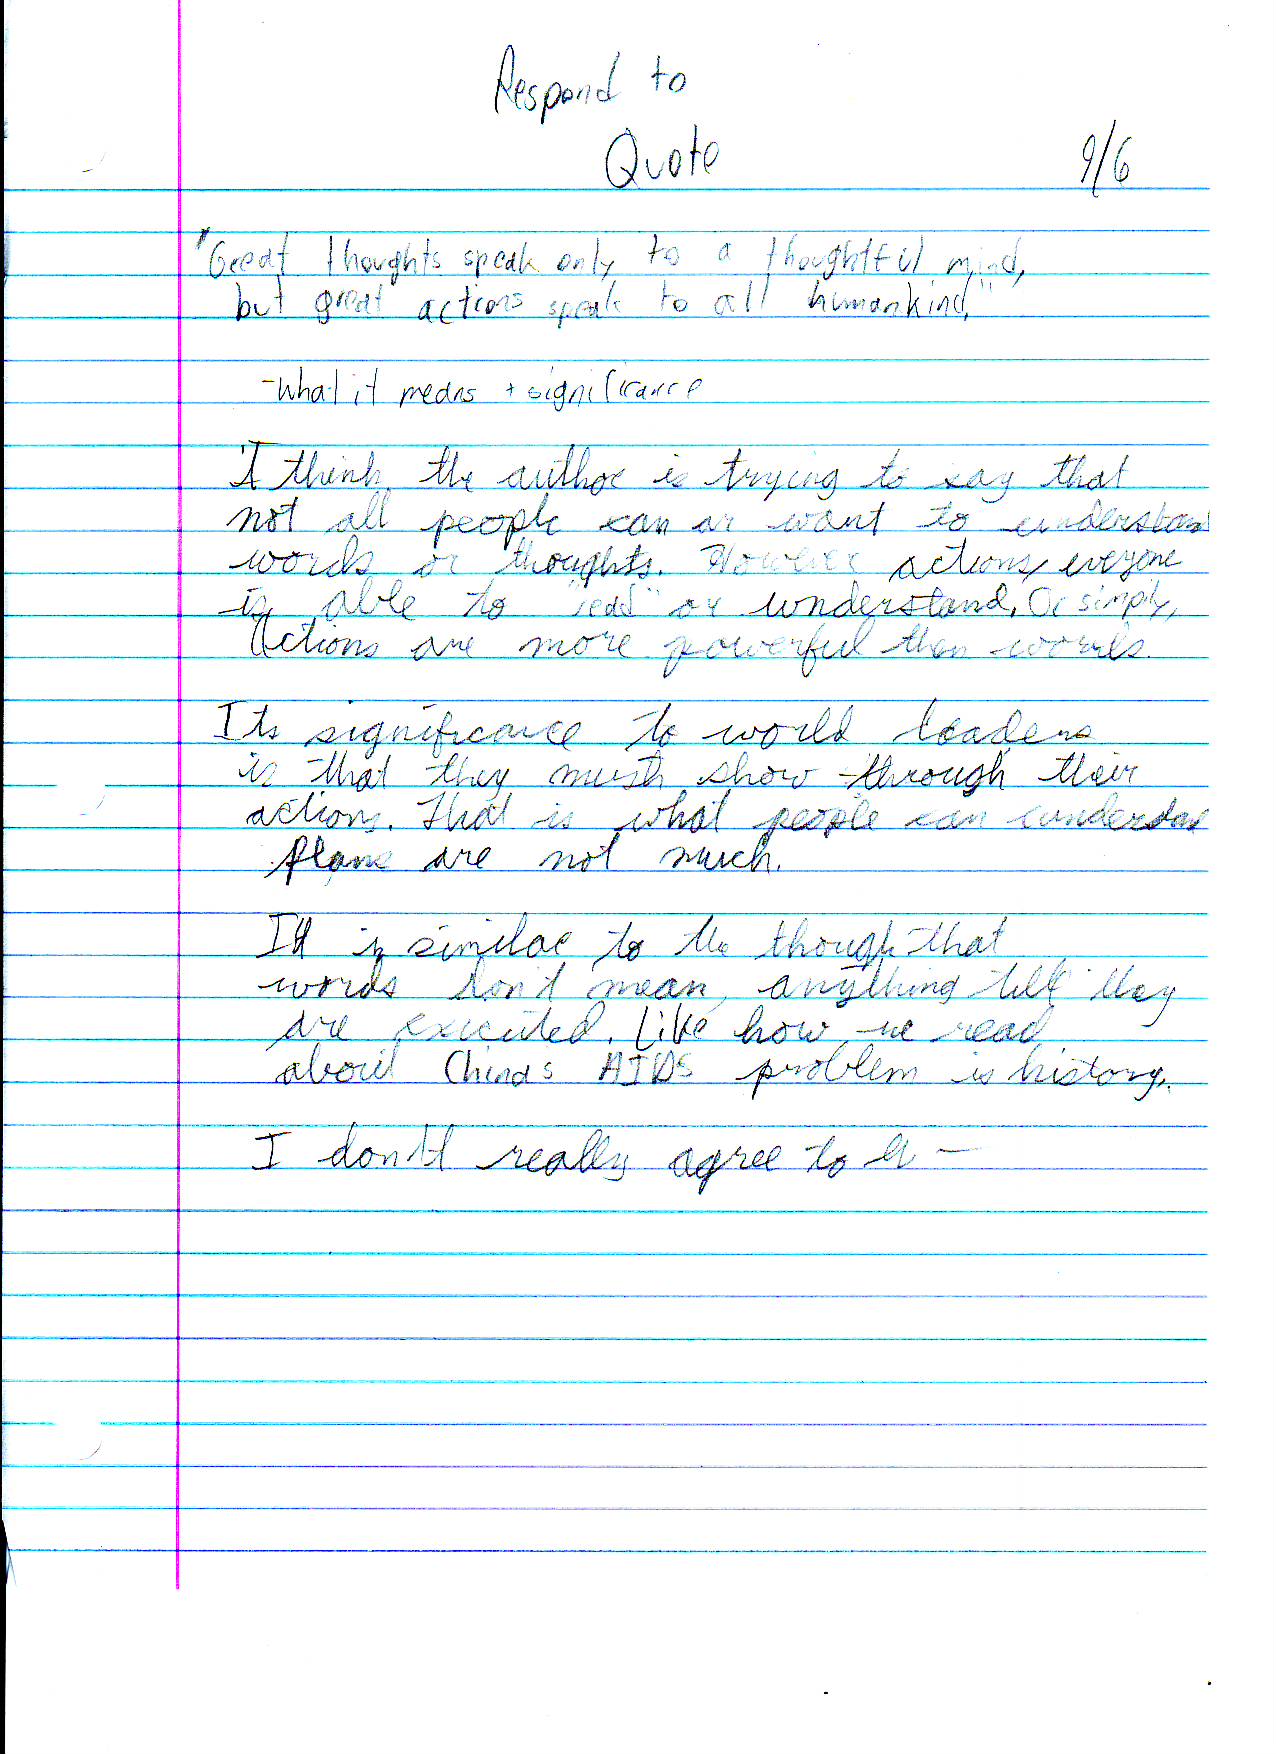 Respond to
Quote
9/6
"Great thoughts speak only to a thoughtful mind,
but great actions speak to all humankind."
-What it means + significance
I think the author is trying to say that
not all people can or want to understand
words or thoughts. However actions, everyone
is able to "read" or understand. Or simply,
Actions are more powerful then words.
Its significance to world leaders
is that they must show through their
actions. That is what people can understand
Plans are not much.
It is similar to the though that
words don't mean anything till they
are executed. Like how we read
about China's AIDS problem in history.
I don't really agree to it —